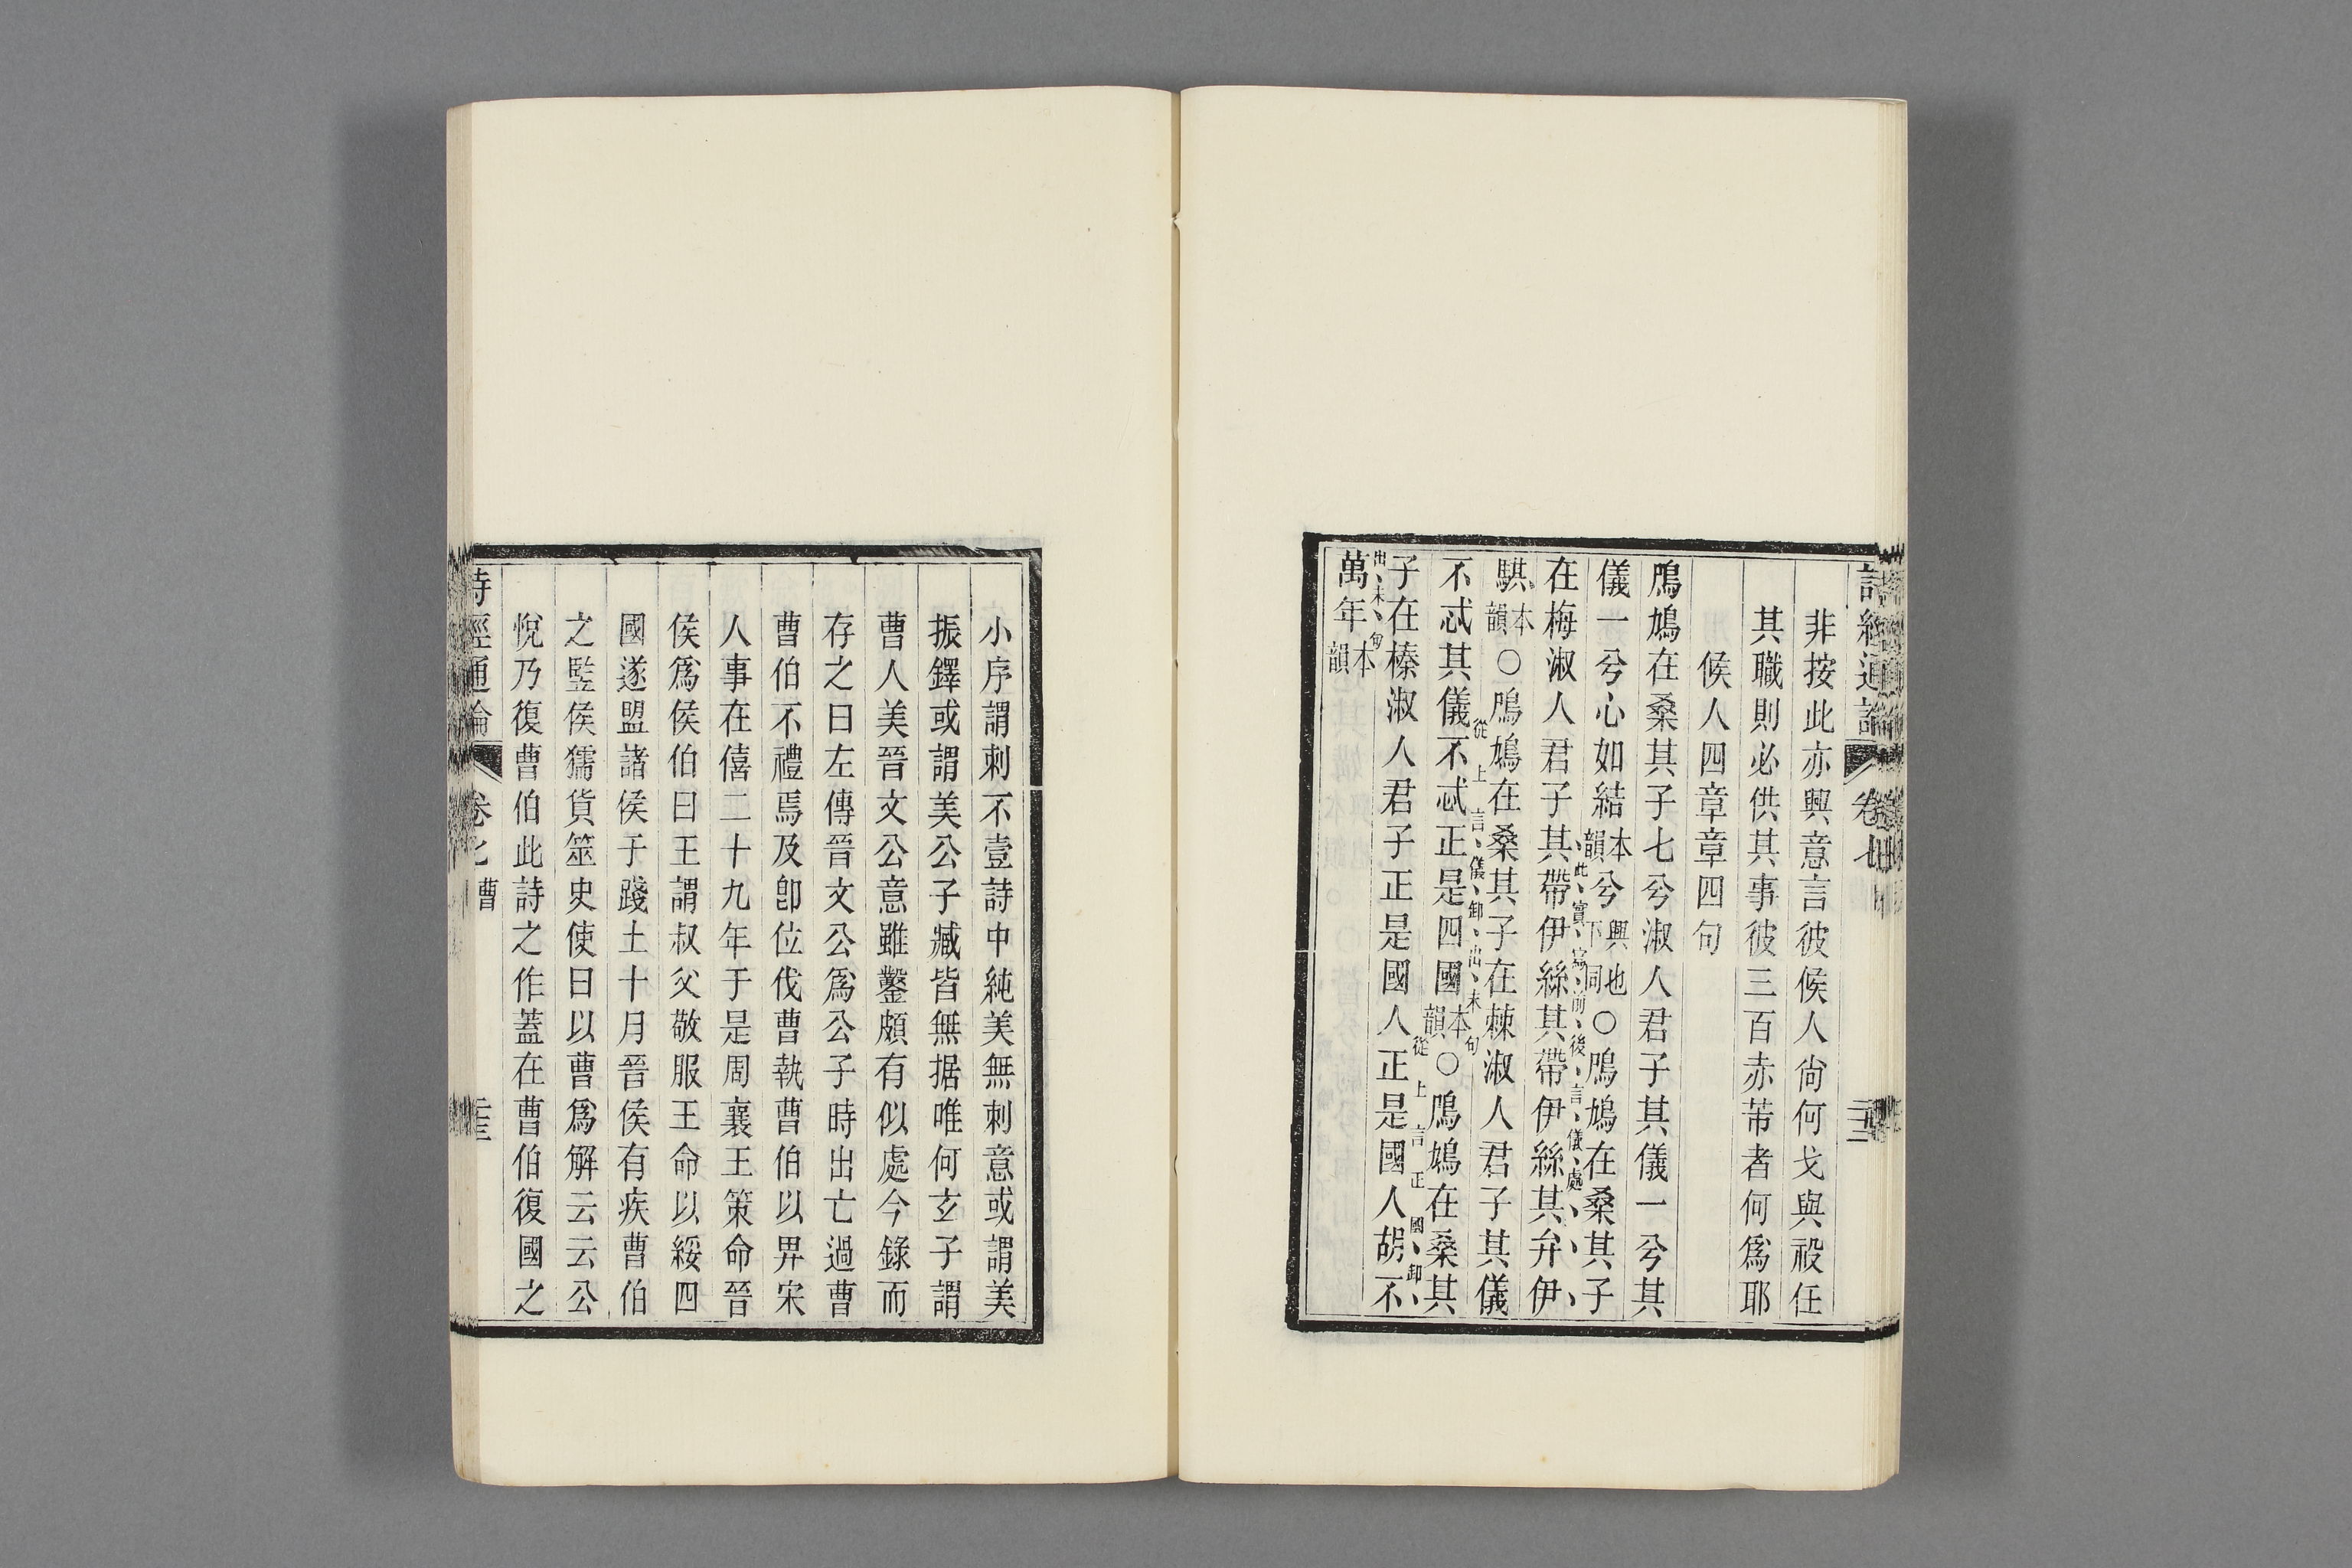 非按此亦興意言彼候人尙何戈與祋任
其職則必供其事彼三百赤芾者何爲耶
候人四章章四句
鳲鳩在桑其子七兮淑人君子其儀一兮其
儀一兮心如結本韻兮興也下同○鳲鳩在桑其子
此實寫前後言儀處
在梅淑人君子其帶伊絲其帶伊絲其弁伊
騏本韻○鳲鳩在桑其子在棘淑人君子其儀
從上言儀卸出末句
不忒其儀不忒正是四國本韻○鳲鳩在桑其
從上言正國卸
子在榛淑人君子正是國人正是國人胡不
出末句
萬年本韻
小序謂刺不壹詩中純美無刺意或謂美
振鐸或謂美公子臧皆無据唯何玄子謂
曹人美晉文公意雖鑿頗有似處今錄而
存之曰左傳晉文公爲公子時出亡過曹
曹伯不禮焉及卽位伐曹執曹伯以畀宋
人事在僖二十九年于是周襄王策命晉
侯爲侯伯曰王謂叔父敬服王命以綏四
國遂盟諸侯于踐土十月晉侯有疾曹伯
之豎侯獳貨筮史使曰以曹爲解云云公
悅乃復曹伯此詩之作蓋在曹伯復國之
詩經通論 卷七 曹